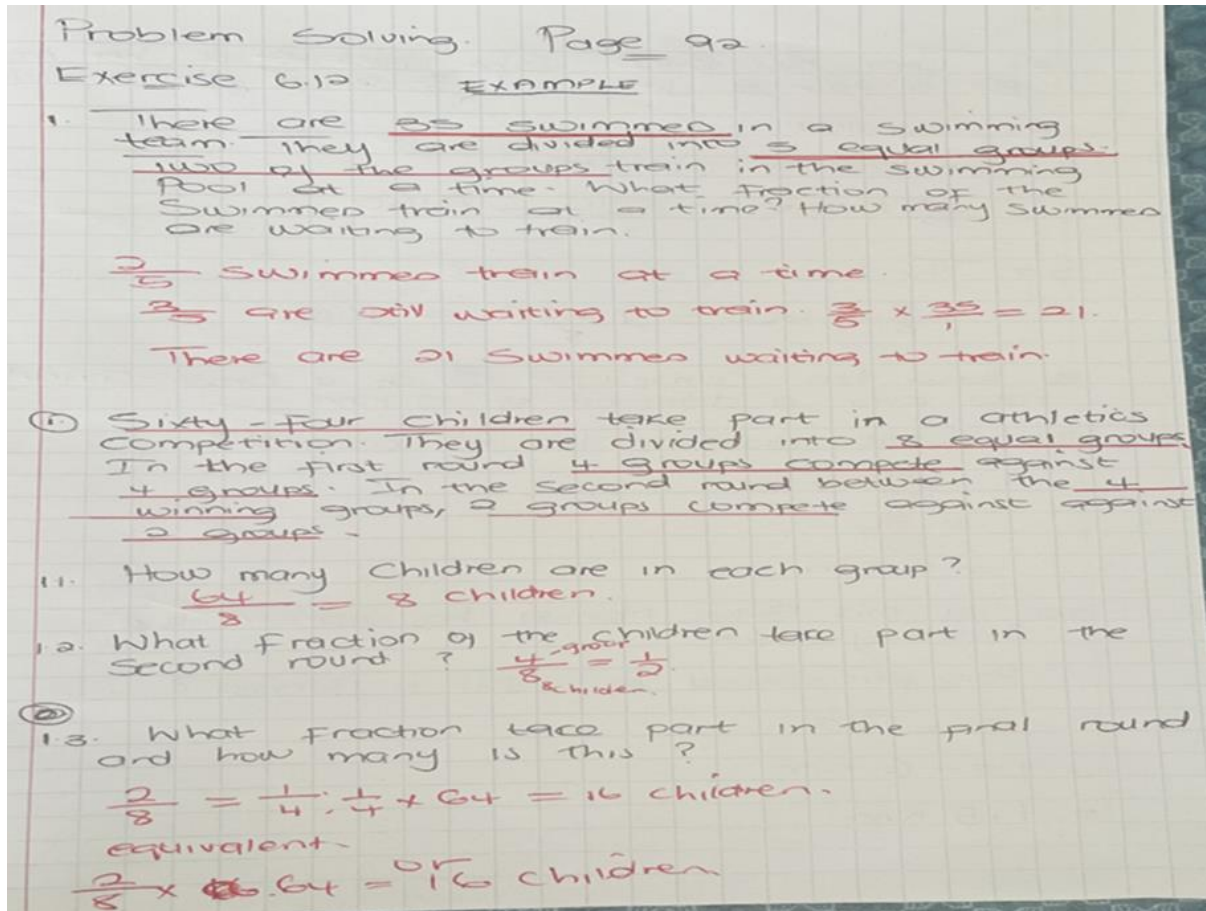 Problem Solving. Page 92.
Exercise 6.12 EXAMPLE
1. There are 35 swimmers in a swimming
team. They are divided into 5 equal groups.
Two of the groups train in the swimming
Pool at a time. What fraction of the
Swimmers train at a time? How many swimmers
are waiting to train.
2/5 swimmers train at a time.
3/5 are waiting to train. 3/5 × 35/1 = 21.
There are 21 swimmers waiting to train.
1. Sixty-Four children take part in a athletics
competition. They are divided into 8 equal groups
In the first round 4 groups compete against
4 groups. In the second round between the 4
winning groups, 2 groups compete against against
2 groups.
1.1. How many Children are in each group?
64/8 = 8 children.
1.2. What Fraction of the children take part in the
Second round? 4/8 = 1/2
-group
children.
1.3. What Fraction take part in the final round
and how many is this?
2/8 = 1/4 : 1/4 × 64 = 16 children.
equivalent-
or
2/8 × 64 = 16 children